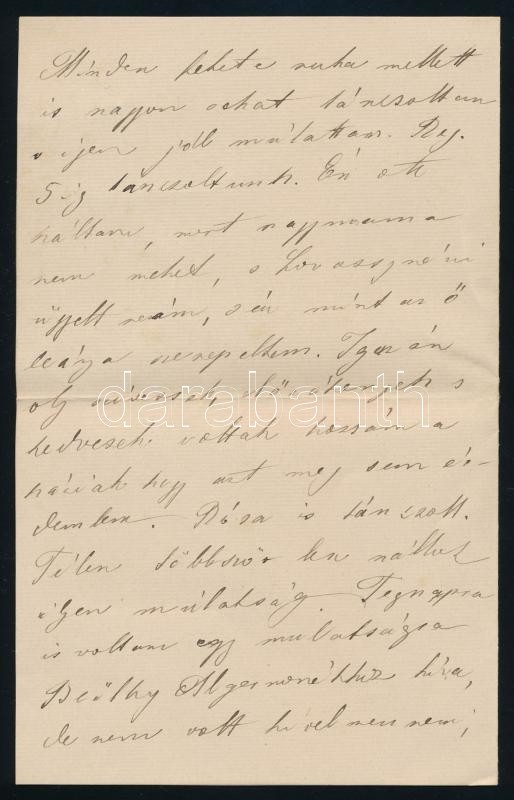 Minden fekete ruha mellett
is nagyon sokat tánczoltam
s igen jól mulattam. Reg.
5 ig tánczoltunk. Én ott
háltam, mert nagymama
nem mehet, s Lovassy néni
ügyelt reám, s én mint az ő
leánya szerepeltem. Igazán
oly szívesek, előzékenyek s
kedvesek voltak hozzám a
háziak hogy azt meg sem ér-
demlem. Róza is tánczolt.
Télen többször len náluk
ilyen mulatság. Tegnapra
is voltam egy mulatságra
Beőthy Algernonékhoz híva,
de nem volt kivel mennem,
darabanth